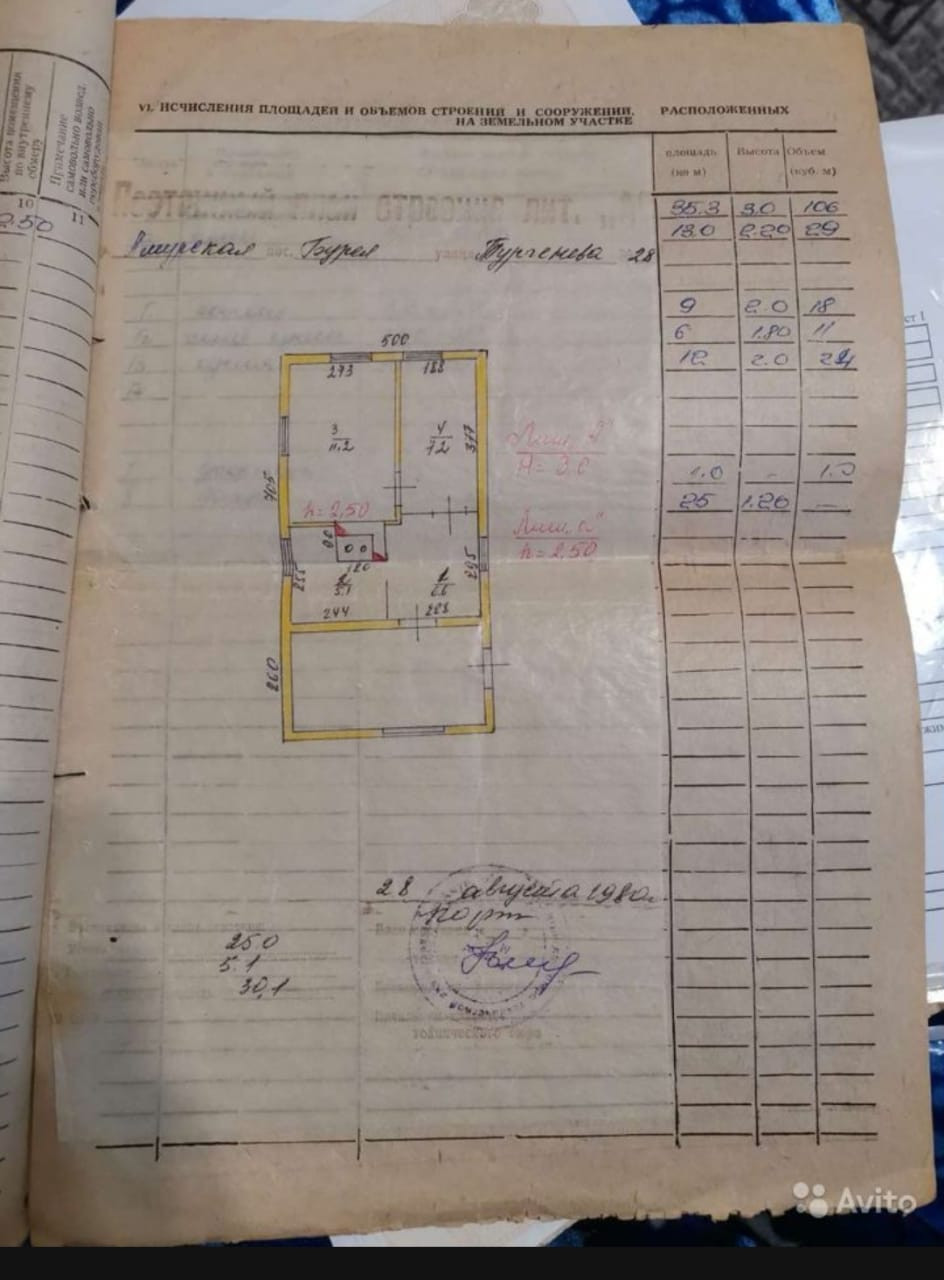 Высота помещения
по внутреннему
обмеру
Примечание
самовольно возвед.
или самовольно
10
11
2.50
VI. ИСЧИСЛЕНИЯ ПЛОЩАДЕЙ И ОБЪЕМОВ СТРОЕНИЙ И СООРУЖЕНИЙ, РАСПОЛОЖЕННЫХ
НА ЗЕМЕЛЬНОМ УЧАСТКЕ
площадь Высота Объем
(кв м) (куб. м)
Поэтажный план строения лит. „А“
35.3 3.0 106
13.0 2.20 29
Амурская пос. Бурея улица Тургенева 28
9 2.0 18
6 1.80 11
12 2.0 24
500
273 188
3
11.2
4
7.2
377
Лит. "А"
H = 3,0
1.0 - 1.0
705
h = 2,50
25 1.20 —
Лит. "а"
h = 2,50
90
120
255
295
2
5.1
1
6.6
244 223
260
28 августа 1980г.
25.0
5.1
30,1
технического бюро
Avito